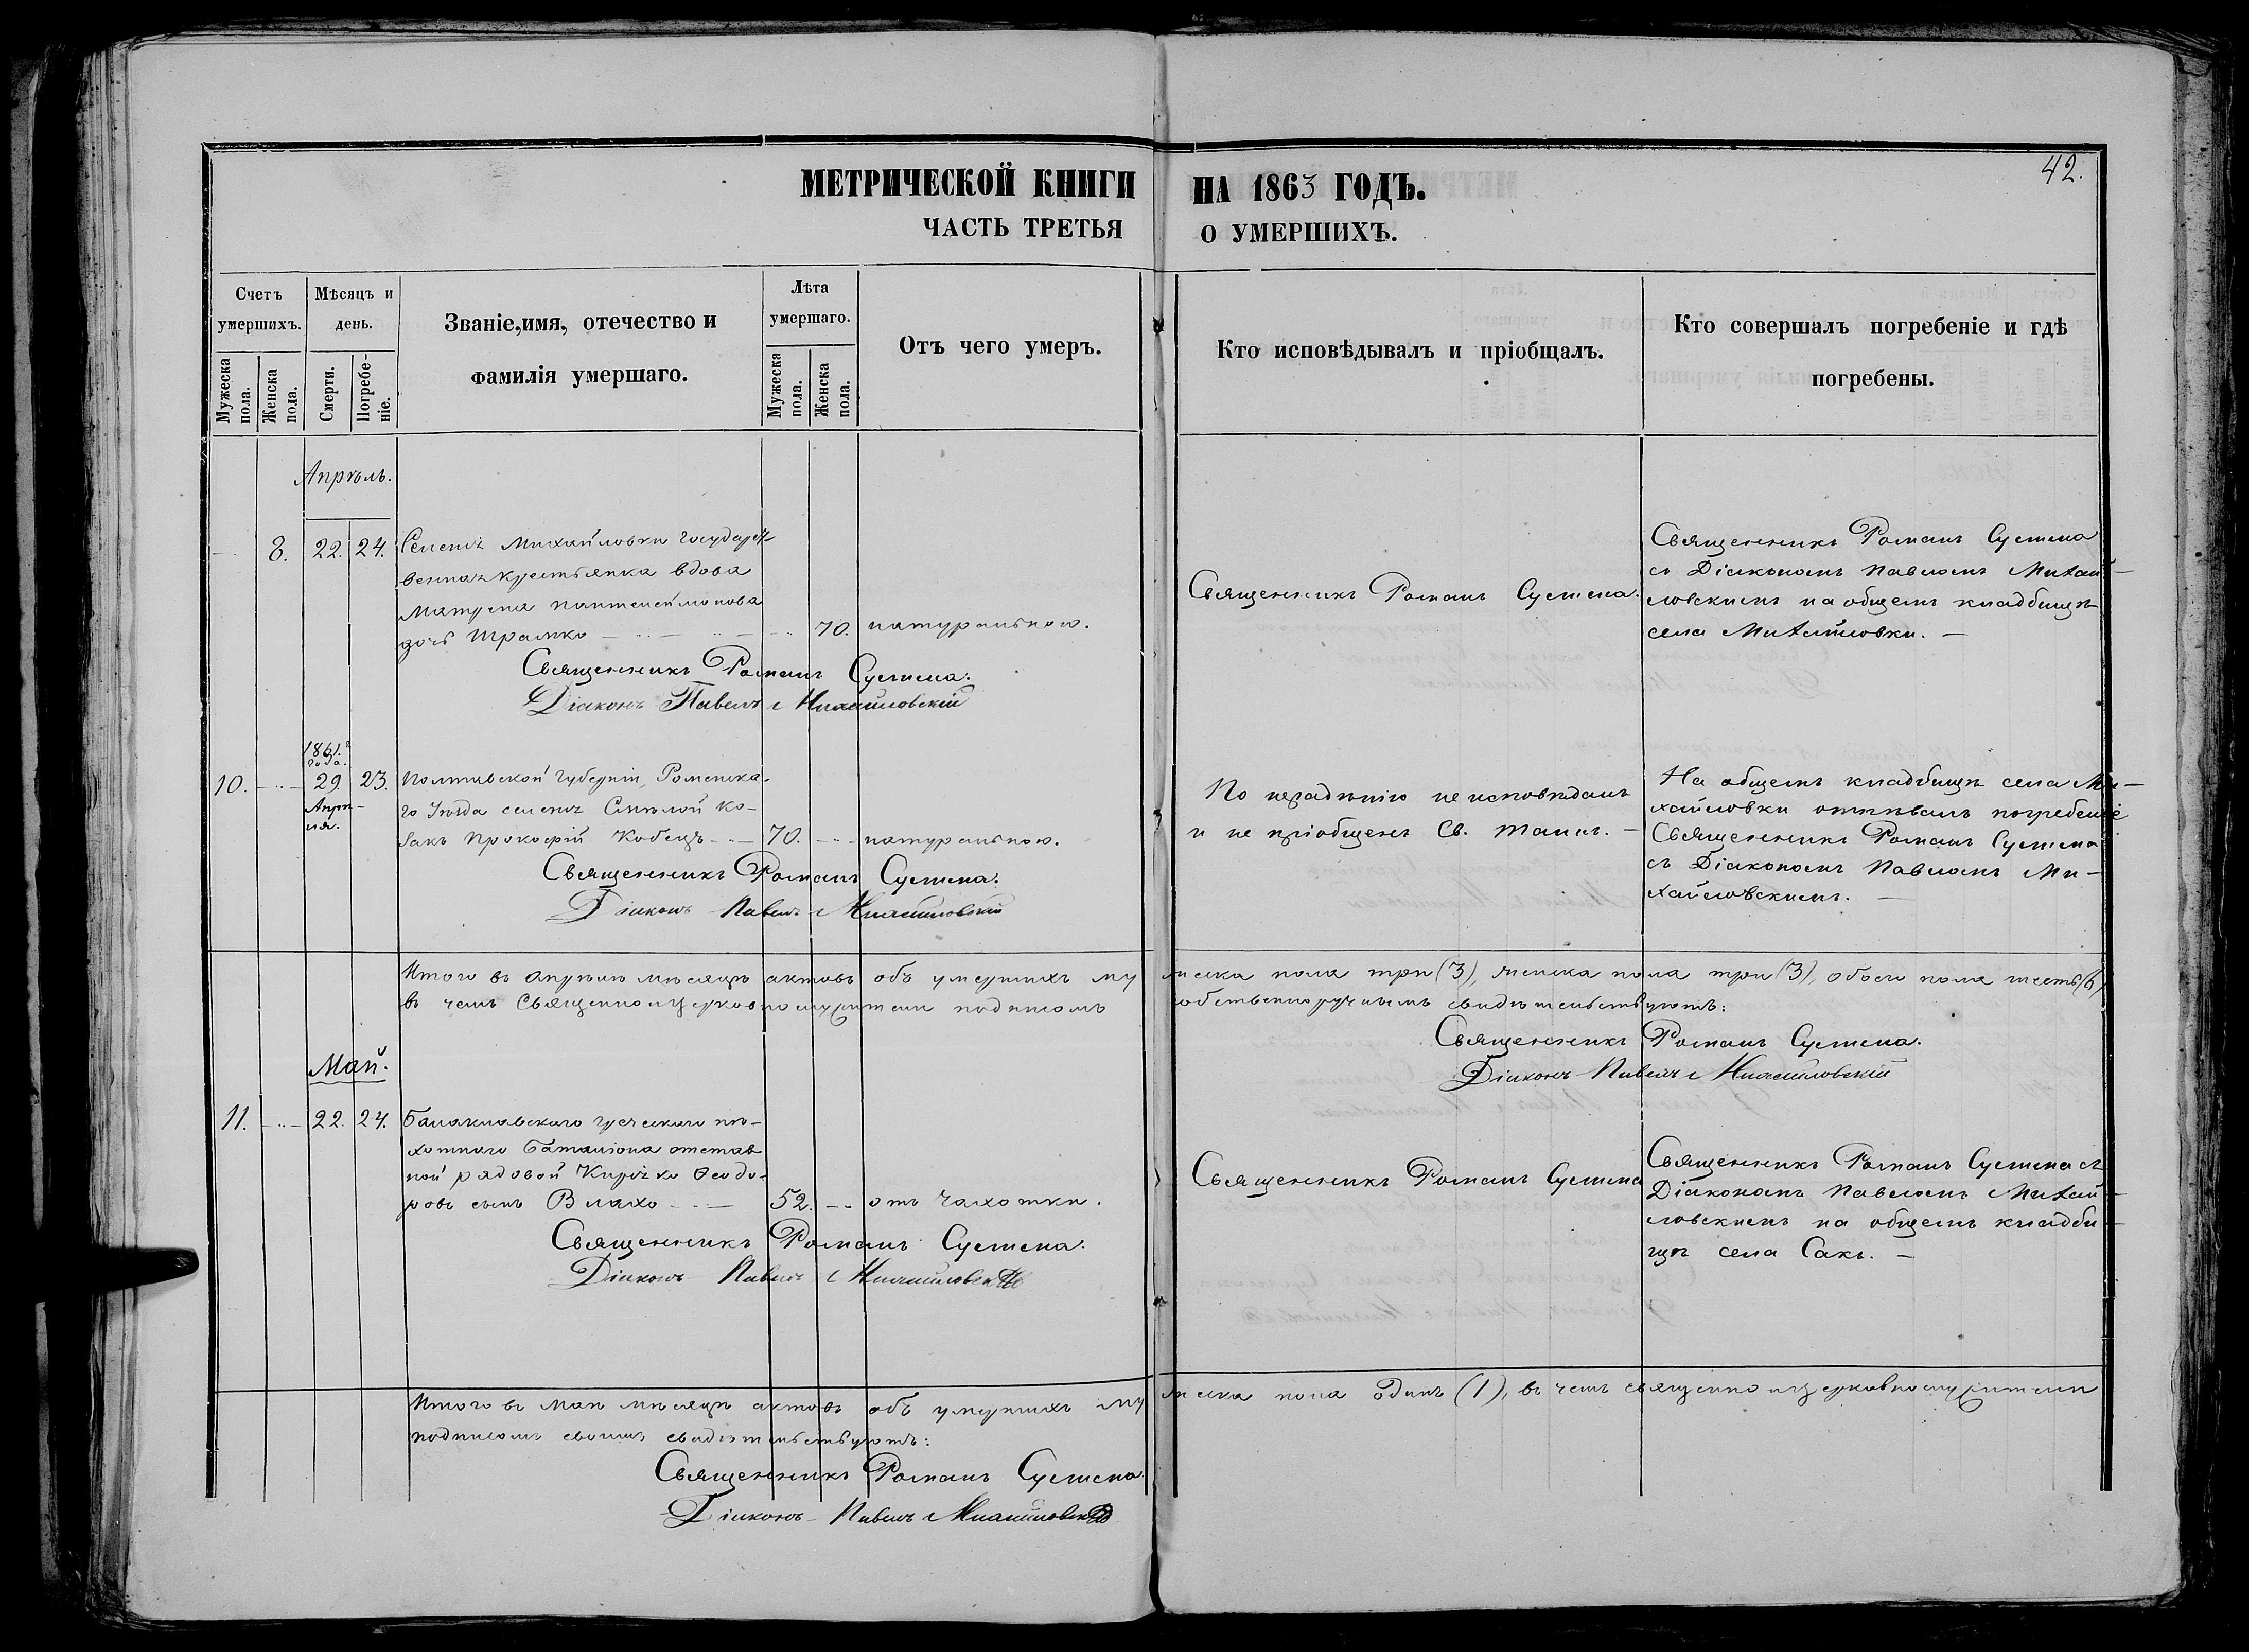 МЕТРИЧЕСКОЙ КНИГИ НА 1863 ГОДЪ.
42.
ЧАСТЬ ТРЕТЬЯ О УМЕРШИХЪ.
Счетъ умершихъ.
Мужеска пола.
Женска пола.
Мѣсяцъ и день.
Смерти.
Погребеніе.
Званіе, имя, отечество и фамилія умершаго.
Лѣта умершаго.
Мужеска пола.
Женска пола.
Отъ чего умеръ.
Кто исповѣдывалъ и пріобщалъ.
Кто совершалъ погребеніе и гдѣ погребены.
Апрѣль.
8. 22. 24. Селенія Михайловки государст-
венная крестьянка вдова
Пантелеймонова
дочь 70. натуральною.
Священникъ Романъ
Священникъ Романъ
съ Діакономъ Павломъ Михай-
ловскимъ на общемъ кладбищѣ
села Михайловки. —
Священникъ Романъ
Діаконъ Павелъ Михайловскій
1861. года.
10. 29. 23. Полтавской Губерніи, Роменска-
Апрѣ-
ля.
го Уѣзда селенія Смѣлой ко-
закъ Прокофій Кобецъ 70. натуральною.
По нераденію не исповѣданъ
и не пріобщенъ Св. таинъ. —
На общемъ кладбищѣ села Ми-
хайловки отпѣвалъ погребеніе
Священникъ Романъ
съ Діакономъ Павломъ Ми-
хайловскимъ. —
Священникъ Романъ
Діаконъ Павелъ Михайловскій
Итого въ Апрѣлѣ мѣсяцѣ актовъ объ умершихъ мужеска пола три (3), женска пола три (3), обоего пола шесть (6)
въ чемъ Священноицерковнослужители подписомъ собственноручнымъ свидѣтельствуютъ:
Священникъ Романъ
Діаконъ Павелъ Михайловскій
Май.
11. 22. 24. Балаклавского греческого пѣ-
хотного Баталіона отстав
ной рядовой Киріяко Ѳеодо-
ровъ сынъ Влахо 52. отъ чахотки.
Священникъ Романъ
Священникъ Романъ съ
Діакономъ Павломъ Михай-
ловскимъ на общемъ кладби-
щѣ села Сакъ. —
Священникъ Романъ
Діаконъ Павелъ Михайловскій
Итого въ Маѣ мѣсяцѣ актовъ объ умершихъ мужеска пола одинъ (1), въ чемъ священноицерковнослужители
подписомъ своимъ свидѣтельствуютъ:
Священникъ Романъ
Діаконъ Павелъ Михайловскій